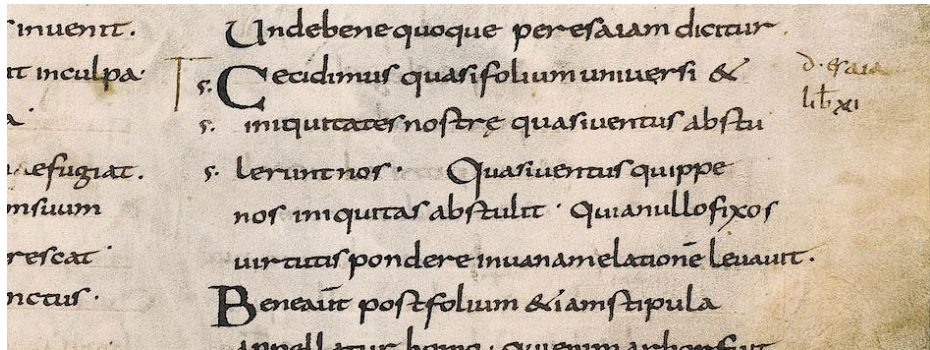 inuenit.
it inculpa.
a.
refugiat.
nsuum
rescat
nctus.
Undebenequoque peresaiam dicitur.
s. Cecidimus quasifolium uniuersi &
s. iniquitates nostrę quasiuentus abstu
s. leruntnos. Quasiuentus quippe
nos iniquitas abstulit. Quianullofixos
uirtutis pondere inuanamelationē leuauit.
Beneaūt postfolium &iamstipula
appellatur homo. Quienim arborfuit
d. esaia
lib xi